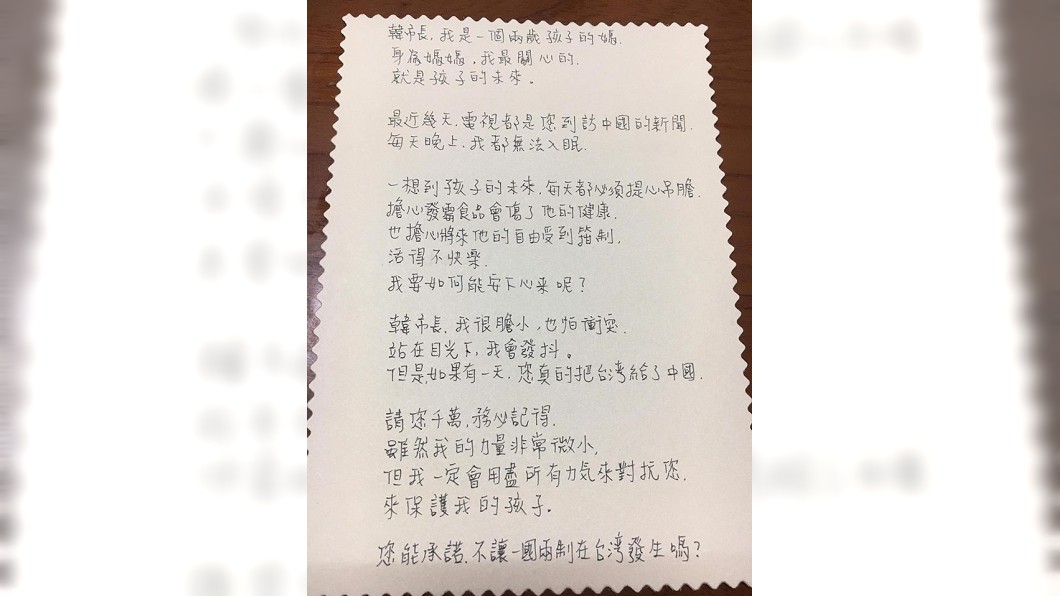 韓市長,我是一個兩歲孩子的媽.
身為媽媽,我最關心的.
就是孩子的未來。
最近幾天,電視都是您到訪中國的新聞.
每天晚上,我都無法入眠.
一想到孩子的未來,每天都必須提心吊膽.
擔心發霉食品會傷了他的健康.
也擔心將來他的自由受到箝制,
活得不快樂.
我要如何能安下心來呢?
韓市長,我很膽小,也怕衝突.
站在目光下,我會發抖。
但是,如果有一天,您真的把台灣給了中國.
請您千萬,務必記得.
雖然我的力量非常微小,
但我一定會用盡所有力氣來對抗您.
來保護我的孩子。
您能承諾,不讓一國兩制在台灣發生嗎?